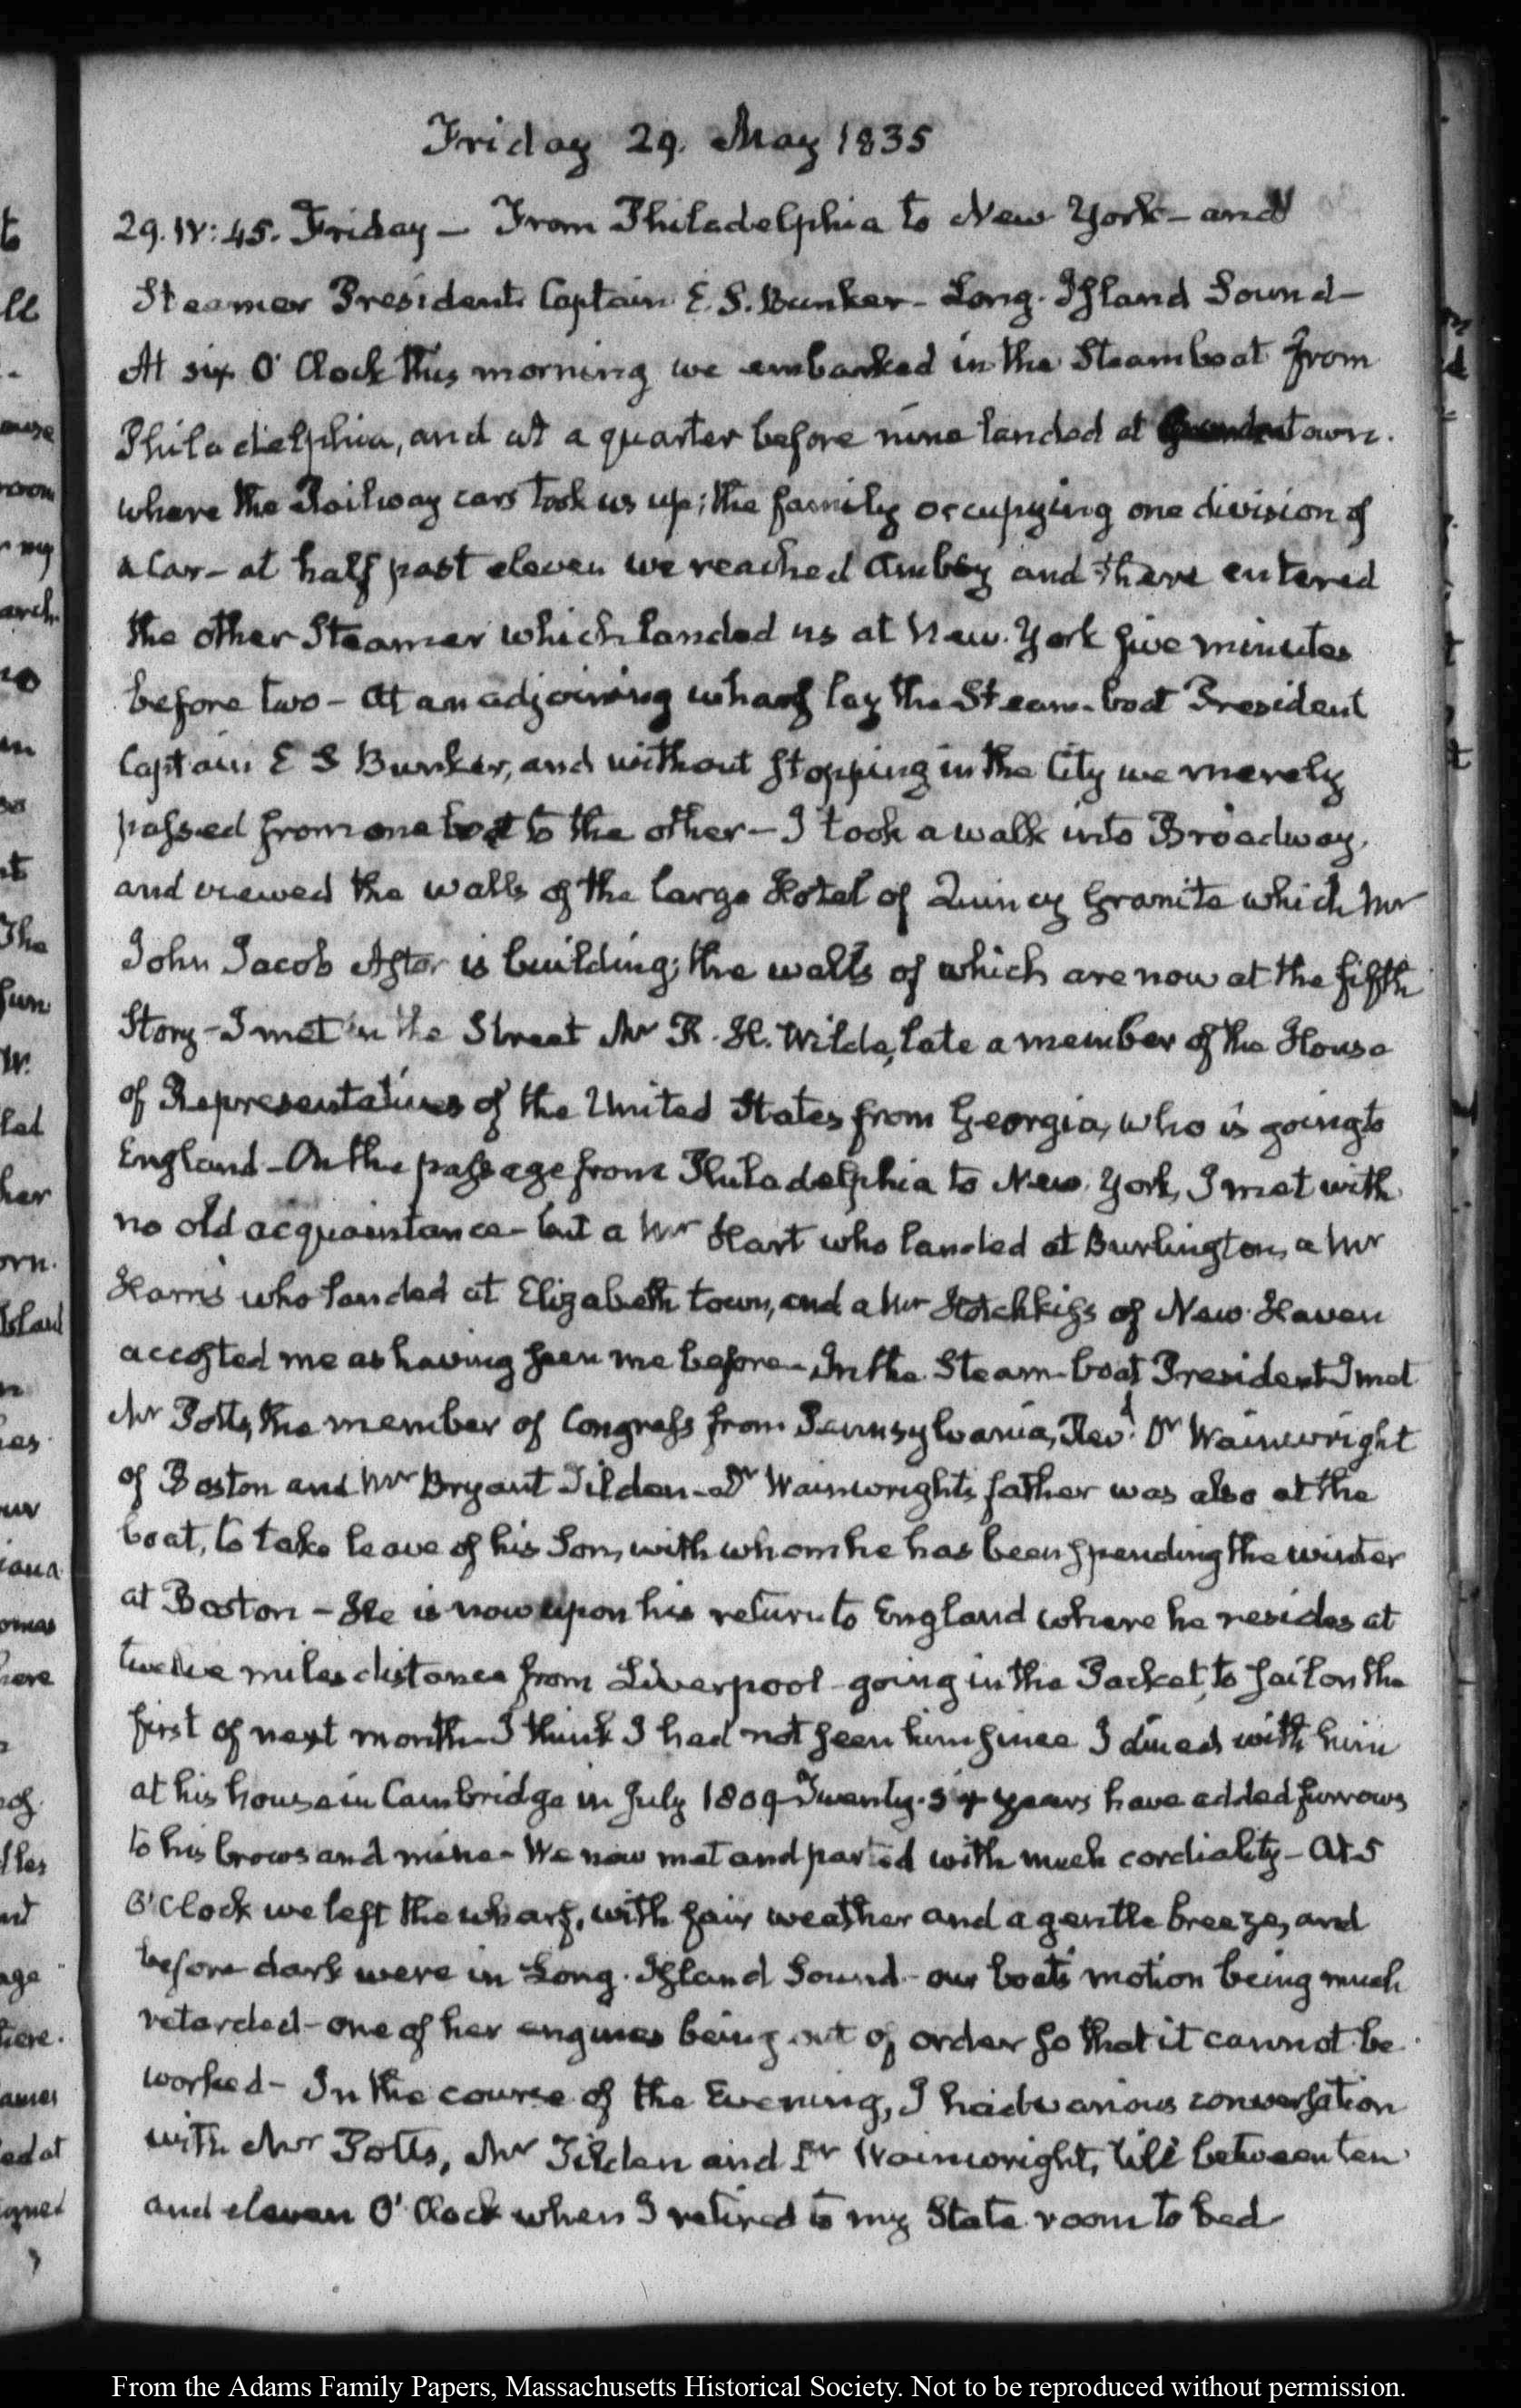 Friday 29. May 1835
29. IV:45. Friday — From Philadelphia to New York — and
Steamer President Captain E. S. Bunker — Long-Island Sound —
At six O'Clock this morning we embarked in the Steamboat from
Philadelphia, and at a quarter before nine landed at
where the Railway cars took us up; the family occupying one division of
a Car — at half past eleven we reached Amboy and there entered
the other Steamer which landed us at New-York five minutes
before two — At an adjoining wharf lay the Steam-boat President
Captain E S Bunker, and without stopping in the City we merely
passed from one boat to the other — I took a walk into Broadway,
and viewed the walls of the large Hotel of Quincy Granite which Mr
John Jacob Astor is building; the walls of which are now at the fifth
Story — I met in the Street Mr R. H. Wilde, late a member of the House
of Representatives of the United States from Georgia, who is going to
England — On the passage from Philadelphia to New-York, I met with
no old acquaintance — but a Mr Hart who landed at Burlington, a Mr
Harris who landed at Elizabeth town, and a Mr Hotchkiss of New-Haven
accosted me as having seen me before — In the Steam-boat President I met
Mr Potts, the member of Congress from Pennsylvania, Revd. Dr Wainwright
of Boston and Mr Bryant Tilden — Dr Wainwright's father was also at the
boat, to take leave of his Son, with whom he has been spending the winter
at Boston — He is now upon his return to England where he resides at
twelve miles distance from Liverpool — going in the Packet, to sail on the
first of next month — I think I had not seen him since I dined with him
at his house in Cambridge in July 1809 — Twenty-six years have added furrows
to his brows and mine — We now met and parted with much cordiality — At 5
O'Clock we left the wharf, with fair weather and a gentle breeze, and
before dark were in Long-Island Sound — our boat's motion being much
retarded — one of her engines being out of order so that it cannot be
worked — In the course of the Evening, I had various conversation
with Mr Potts, Mr Tilden and Dr Wainwright, till between ten
and eleven O'Clock when I retired to my State room to bed
From the Adams Family Papers, Massachusetts Historical Society. Not to be reproduced without permission.